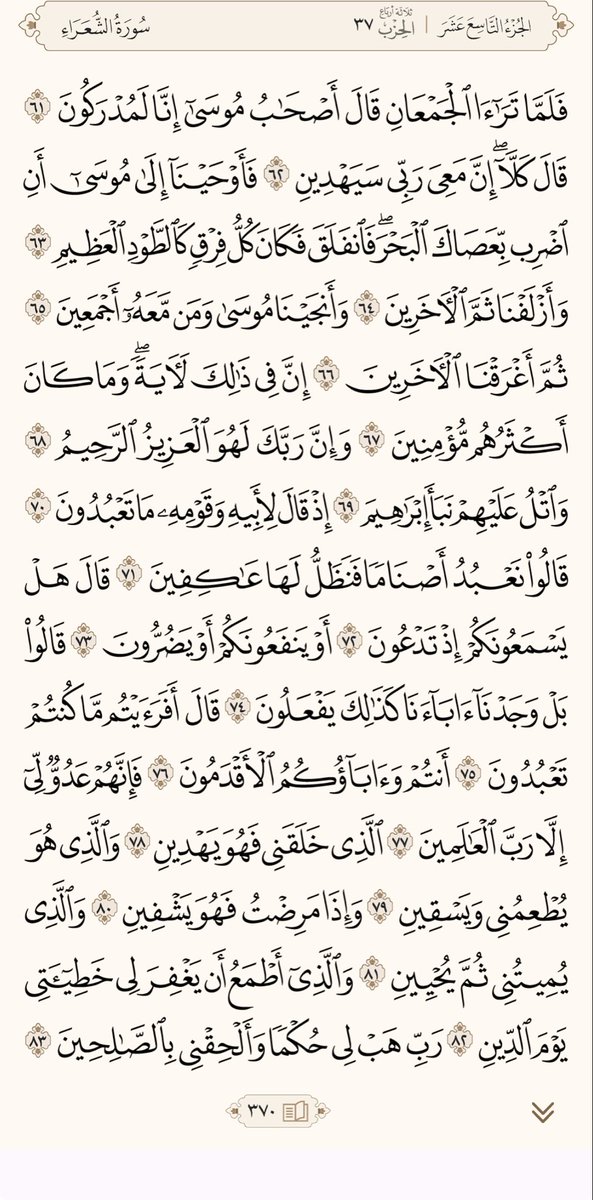 الجُزْءُ التَّاسِعَ عَشَرَ | ثلاثة أرباع الحِزْبُ ٣٧
سُورَةُ الشُّعَرَاءِ
فَلَمَّا تَرَٰٓءَا ٱلۡجَمۡعَانِ قَالَ أَصۡحَٰبُ مُوسَىٰٓ إِنَّا لَمُدۡرَكُونَ ٦١
قَالَ كَلَّآۖ إِنَّ مَعِيَ رَبِّي سَيَهۡدِينِ ٦٢ فَأَوۡحَيۡنَآ إِلَىٰ مُوسَىٰٓ أَنِ
ٱضۡرِب بِّعَصَاكَ ٱلۡبَحۡرَۖ فَٱنفَلَقَ فَكَانَ كُلُّ فِرۡقٖ كَٱلطَّوۡدِ ٱلۡعَظِيمِ ٦٣
وَأَزۡلَفۡنَا ثَمَّ ٱلۡأٓخَرِينَ ٦٤ وَأَنجَيۡنَا مُوسَىٰ وَمَن مَّعَهُۥٓ أَجۡمَعِينَ ٦٥
ثُمَّ أَغۡرَقۡنَا ٱلۡأٓخَرِينَ ٦٦ إِنَّ فِي ذَٰلِكَ لَأٓيَةٗۖ وَمَا كَانَ
أَكۡثَرُهُم مُّؤۡمِنِينَ ٦٧ وَإِنَّ رَبَّكَ لَهُوَ ٱلۡعَزِيزُ ٱلرَّحِيمُ ٦٨
وَٱتۡلُ عَلَيۡهِمۡ نَبَأَ إِبۡرَٰهِيمَ ٦٩ إِذۡ قَالَ لِأَبِيهِ وَقَوۡمِهِۦ مَا تَعۡبُدُونَ ٧٠
قَالُواْ نَعۡبُدُ أَصۡنَامٗا فَنَظَلُّ لَهَا عَٰكِفِينَ ٧١ قَالَ هَلۡ
يَسۡمَعُونَكُمۡ إِذۡ تَدۡعُونَ ٧٢ أَوۡ يَنفَعُونَكُمۡ أَوۡ يَضُرُّونَ ٧٣ قَالُواْ
بَلۡ وَجَدۡنَآ ءَابَآءَنَا كَذَٰلِكَ يَفۡعَلُونَ ٧٤ قَالَ أَفَرَءَيۡتُم مَّا كُنتُمۡ
تَعۡبُدُونَ ٧٥ أَنتُمۡ وَءَابَآؤُكُمُ ٱلۡأَقۡدَمُونَ ٧٦ فَإِنَّهُمۡ عَدُوّٞ لِّيٓ
إِلَّا رَبَّ ٱلۡعَٰلَمِينَ ٧٧ ٱلَّذِي خَلَقَنِي فَهُوَ يَهۡدِينِ ٧٨ وَٱلَّذِي هُوَ
يُطۡعِمُنِي وَيَسۡقِينِ ٧٩ وَإِذَا مَرِضۡتُ فَهُوَ يَشۡفِينِ ٨٠ وَٱلَّذِي
يُمِيتُنِي ثُمَّ يُحۡيِينِ ٨١ وَٱلَّذِيٓ أَطۡمَعُ أَن يَغۡفِرَ لِي خَطِيٓـَٔتِي
يَوۡمَ ٱلدِّينِ ٨٢ رَبِّ هَبۡ لِي حُكۡمٗا وَأَلۡحِقۡنِي بِٱلصَّٰلِحِينَ ٨٣
٣٧٠